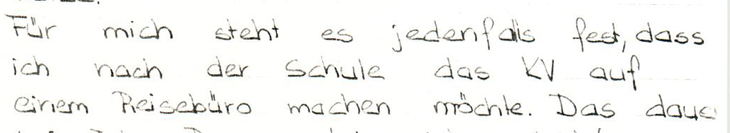 Für mich steht es jedenfalls fest, dass
ich nach der Schule das KV auf
einem Reisebüro machen möchte. Das